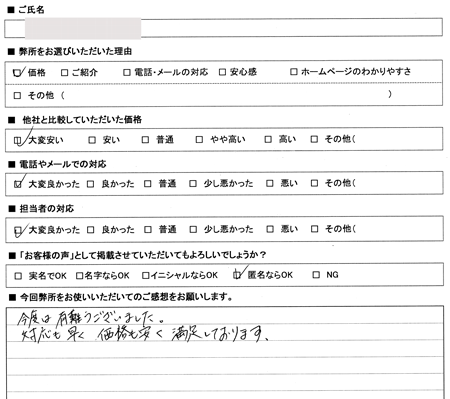 ■ ご氏名
■ 弊所をお選びいただいた理由
☑ 価格 □ご紹介 □電話・メールの対応 □安心感 □ホームページのわかりやすさ
□ その他 ( )
■ 他社と比較していただいた価格
☑大変安い □ 安い □ 普通 □ やや高い □ 高い □ その他(
■ 電話やメールでの対応
☑ 大変良かった □ 良かった □ 普通 □ 少し悪かった □ 悪い □ その他(
■ 担当者の対応
☑大変良かった □ 良かった □ 普通 □ 少し悪かった □ 悪い □ その他(
■ 「お客様の声」として掲載させていただいてもよろしいでしょうか？
□ 実名でOK □名字ならOK □イニシャルならOK ☑ 匿名ならOK □ NG
■ 今回弊所をお使いいただいてのご感想をお願いします。
今度は有難うございました。
対応も早く 価格も安く 満足しております。